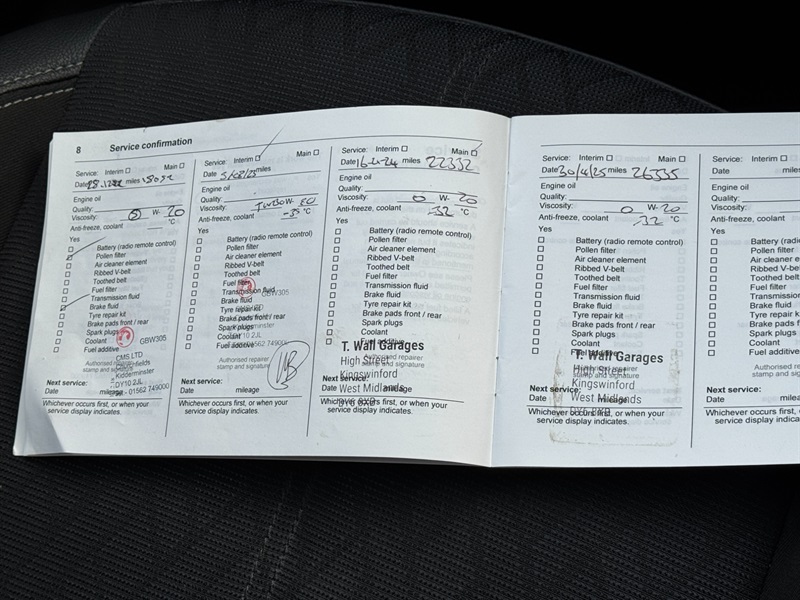 8 Service confirmation
Service: Interim Main
Date miles
Engine oil
Quality:
Viscosity: W- 20
Anti-freeze, coolant °C
Yes
Battery (radio remote control)
Pollen filter
Air cleaner element
Ribbed V-belt
Toothed belt
Fuel filter
Transmission fluid
Brake fluid
Tyre repair kit
Brake pads front / rear
Spark plugs
Coolant GBW305
Fuel additive
CMS LTD
Authorised repairer
stamp and signature
Kidderminster
DY10 2JL
01562 749000
Next service:
Date mileage
Whichever occurs first, or when your
service display indicates.
Service: Interim Main
Date miles
Engine oil
Quality:
Viscosity:
Anti-freeze, coolant °C
Yes
Battery (radio remote control)
Pollen filter
Air cleaner element
Ribbed V-belt
Toothed belt
Fuel filter
Transmission fluid
GBW305
Brake fluid
Tyre repair kit
Brake pads front / rear
Spark plugs
Coolant
Fuel additive
Authorised repairer
stamp and signature
Next service:
Date mileage
Whichever occurs first, or when your
service display indicates.
Service: Interim Main
Date miles 22332
Engine oil
Quality:
Viscosity: 0 W- 20
Anti-freeze, coolant -32 °C
Yes
Battery (radio remote control)
Pollen filter
Air cleaner element
Ribbed V-belt
Toothed belt
Fuel filter
Transmission fluid
Brake fluid
Tyre repair kit
Brake pads front / rear
Spark plugs
Coolant
Fuel additive
T. Wall Garages
High Street
Kingswinford
West Midlands
DY6 8XD
Next service:
Date mileage
Whichever occurs first, or when your
service display indicates.
Service: Interim Main
Date 30/4/25 miles 26335
Engine oil
Quality:
Viscosity: 0 W- 20
Anti-freeze, coolant -32 °C
Yes
Battery (radio remote control)
Pollen filter
Air cleaner element
Ribbed V-belt
Toothed belt
Fuel filter
Transmission fluid
Brake fluid
Tyre repair kit
Brake pads front / rear
Spark plugs
Coolant
Fuel additive
T. Wall Garages
High Street
Kingswinford
West Midlands
DY6 8XD
Next service:
Date mileage
Whichever occurs first, or when your
service display indicates.
Service: Interim
Date miles
Engine oil
Quality:
Viscosity:
Anti-freeze, coolant
Yes
Battery (radio
Pollen filter
Air cleaner element
Ribbed V-belt
Toothed belt
Fuel filter
Transmission fluid
Brake fluid
Tyre repair kit
Brake pads front
Spark plugs
Coolant
Fuel additive
Authorised
stamp and
Next service:
Date
Whichever occurs first, or
service display indicates.